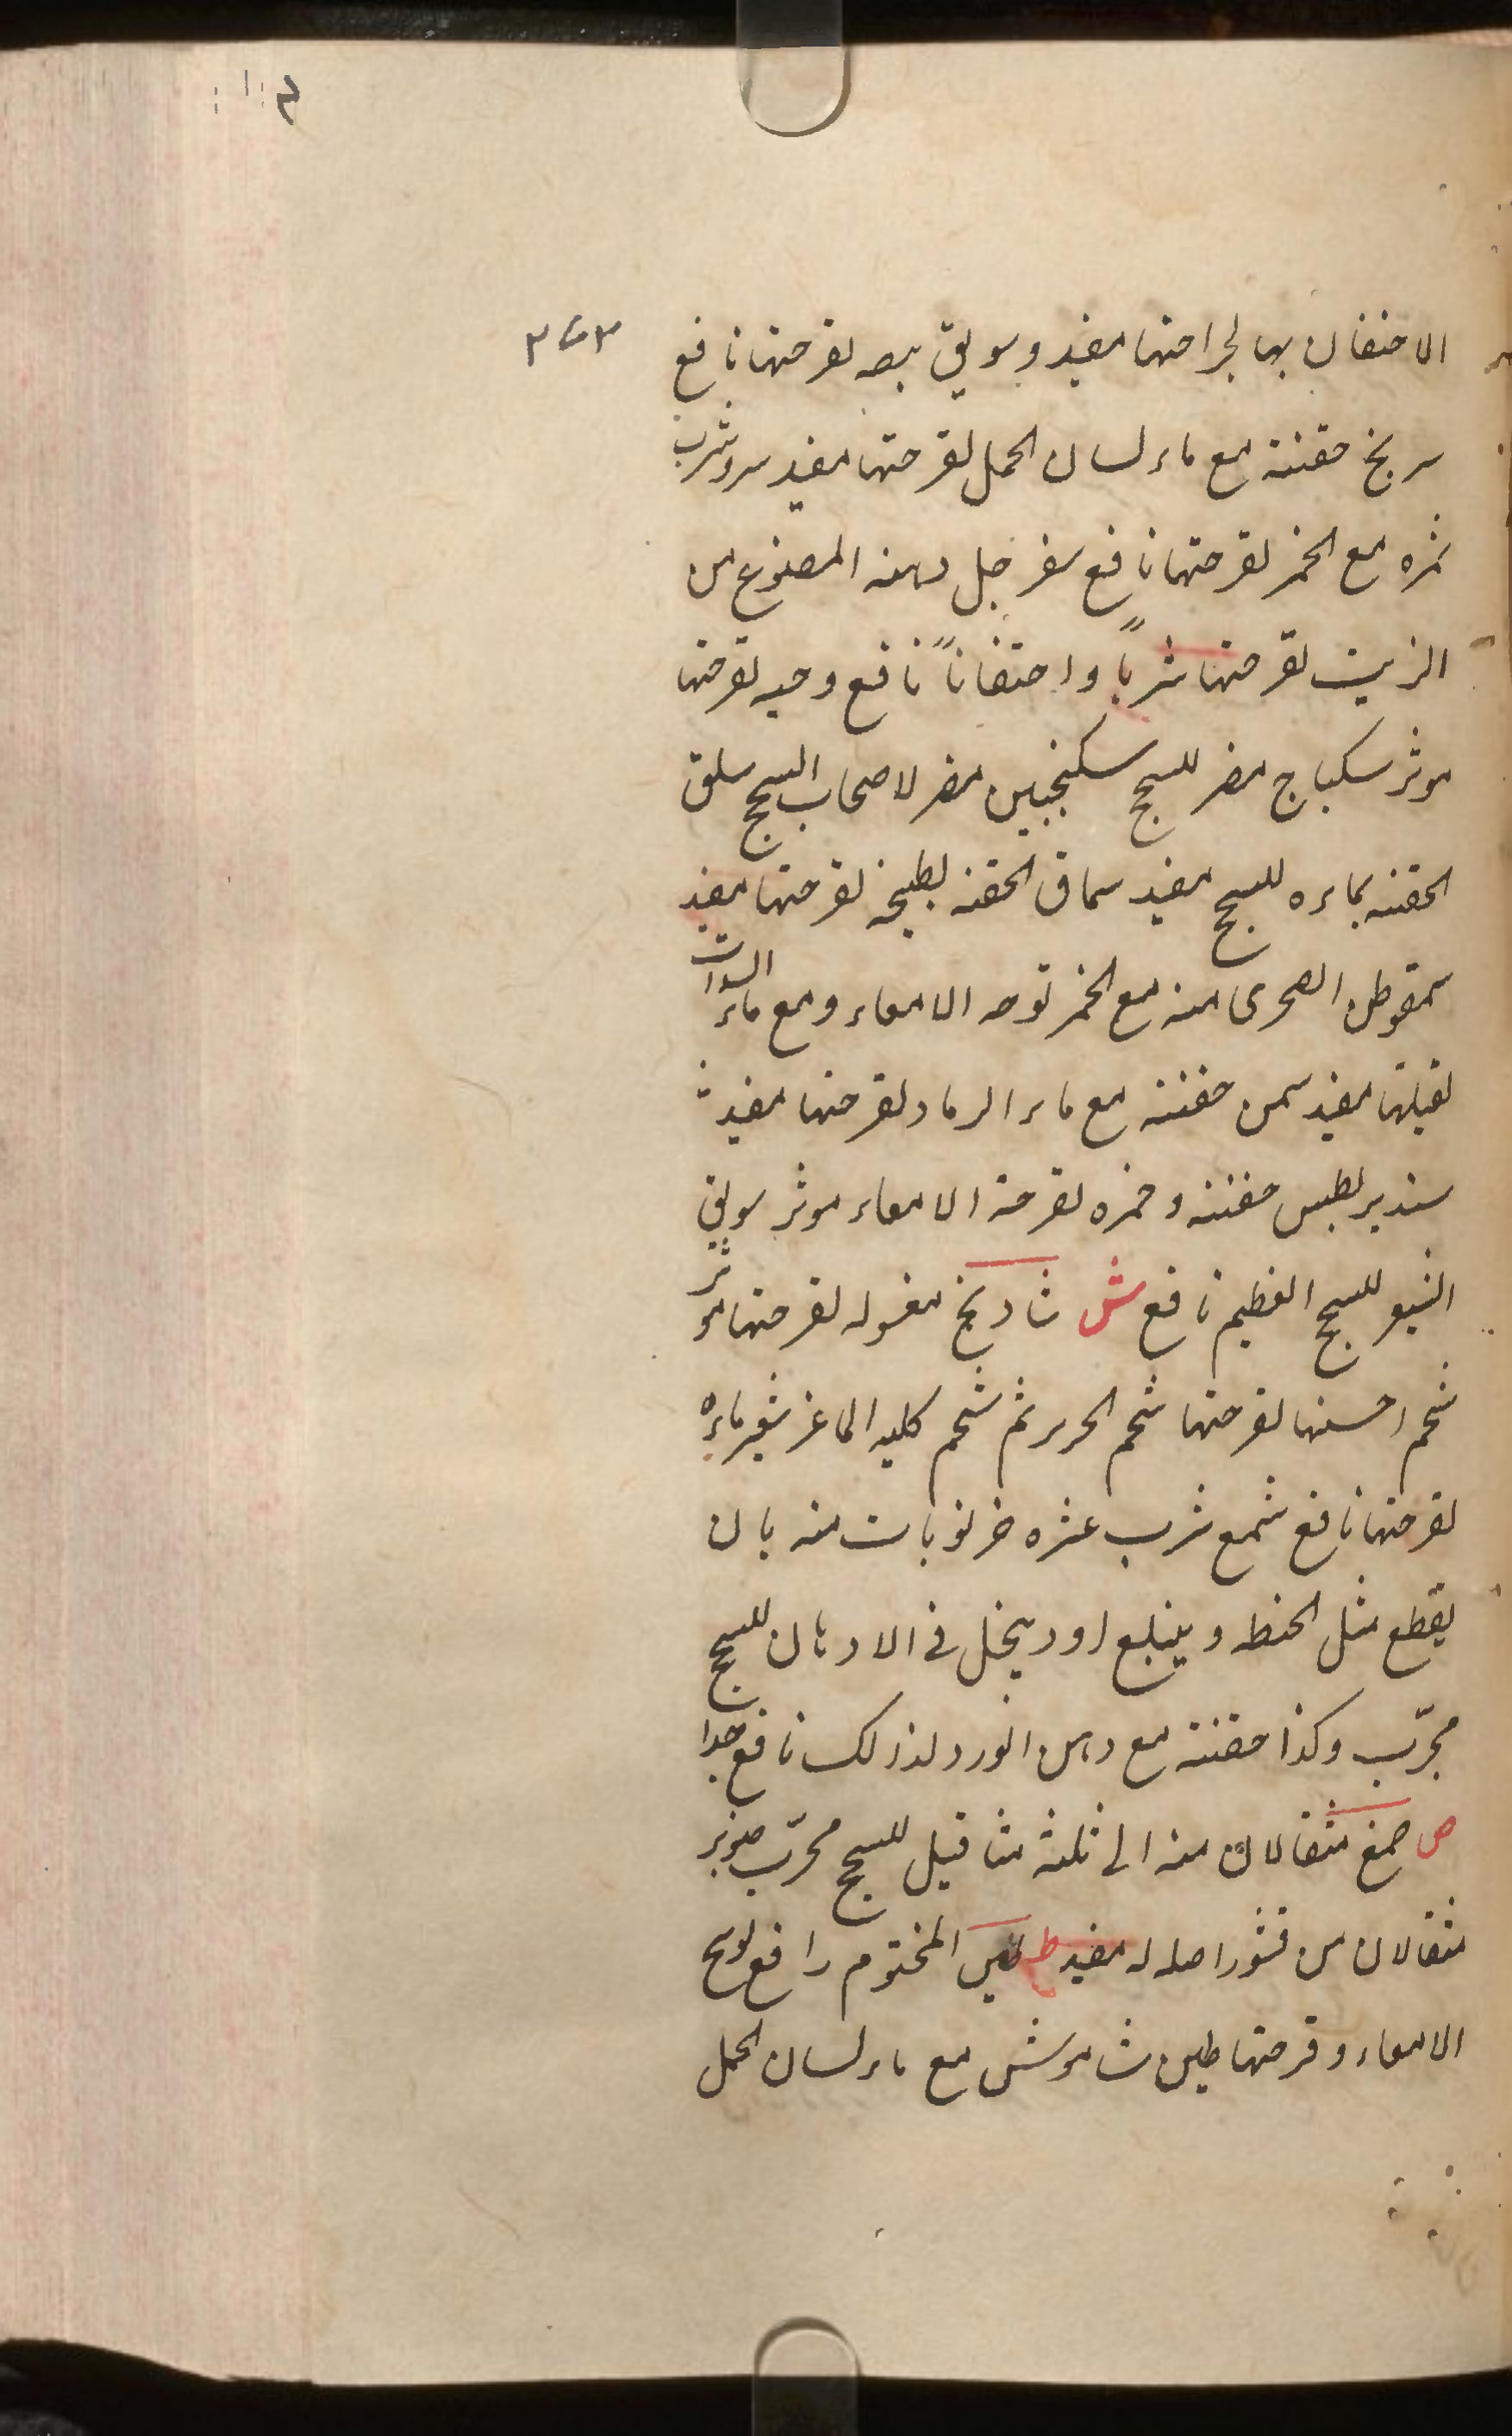 الاحتقان بها لجراحتها مفيد وسويق بصه لقرحتها نافع
سرنج حقنته مع ماء لسان الحمل لقرحتها مفيد سرو شرب
ثمره مع الخمر لقرحتها نافع سفرجل دهنه المصنوع من
الزيت لقرحتها شربًا واحتقانًا نافع وحبه لقرحتها
موثر سكباج مضر للسحج سكنجبين مضر لاصحاب السحج سلق
الحقنه بماءه للسحج مفيد سماق الحقنه بطبيخه لقرحتها مفيد
سمقوطن الصحرى منه مع الخمر قوحه الامعاء ومع ماء
مفيد سمن حقنته مع ماء الرماد لقرحتها مفيد
حقنته وخمره لقرحة الامعاء موثر سويق
للسحج العظيم نافع ش شادنج مغسوله لقرحتها موثر
شحم احسنها لقرحتها شحم ثم شحم كليه الماعز شعير ماءه
لقرحتها نافع شمع شرب عشره خرنوبات منه بان
يقطع مثل الحنطه ويبتلع او ينحل فى الادهان للسحج
مجرّب وكذا حقنته مع دهن الورد لذلك نافع جدا
ص صمغ مثقالان منه الى ثلثة مثاقيل للسحج مجرّب صنوبر
مثقالان من قشور اصله له مفيد ط طين المختوم رافع لوسخ
الامعاء وقرحتها طين شاموش مع ماء لسان الحمل